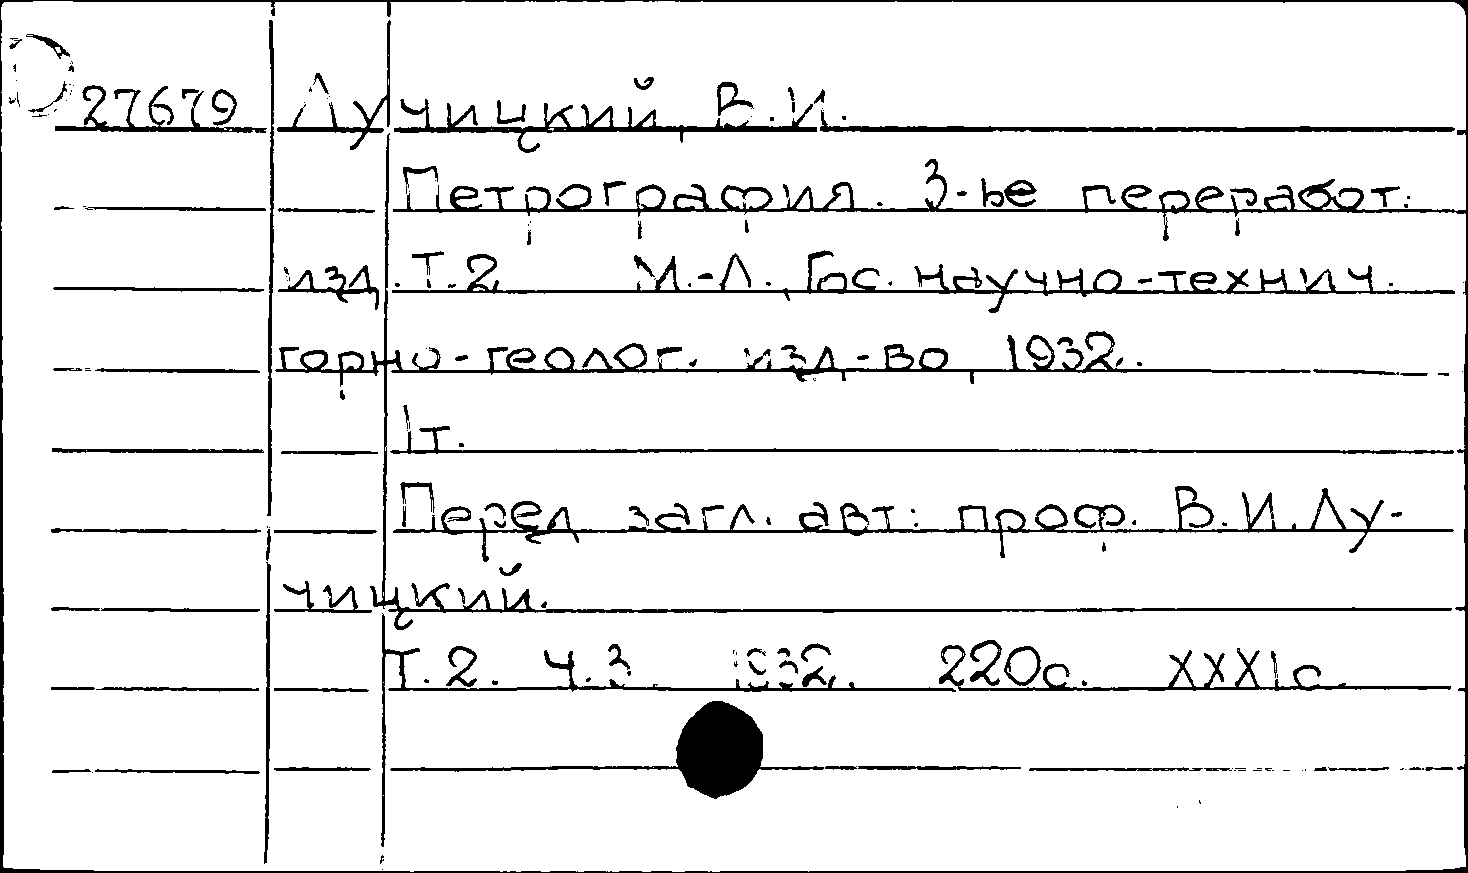 27679 Лучицкий, В.И.
Петрография. 3-ье переработ.
изд. Т.2 М.-Л., Гос. научно-технич.
горно-геолог. изд-во, 1932.
1т.
Перед загл. авт: проф. В.И. Лу-
чицкий.
Т.2. Ч.3. 1932. 220с. XXXI с.